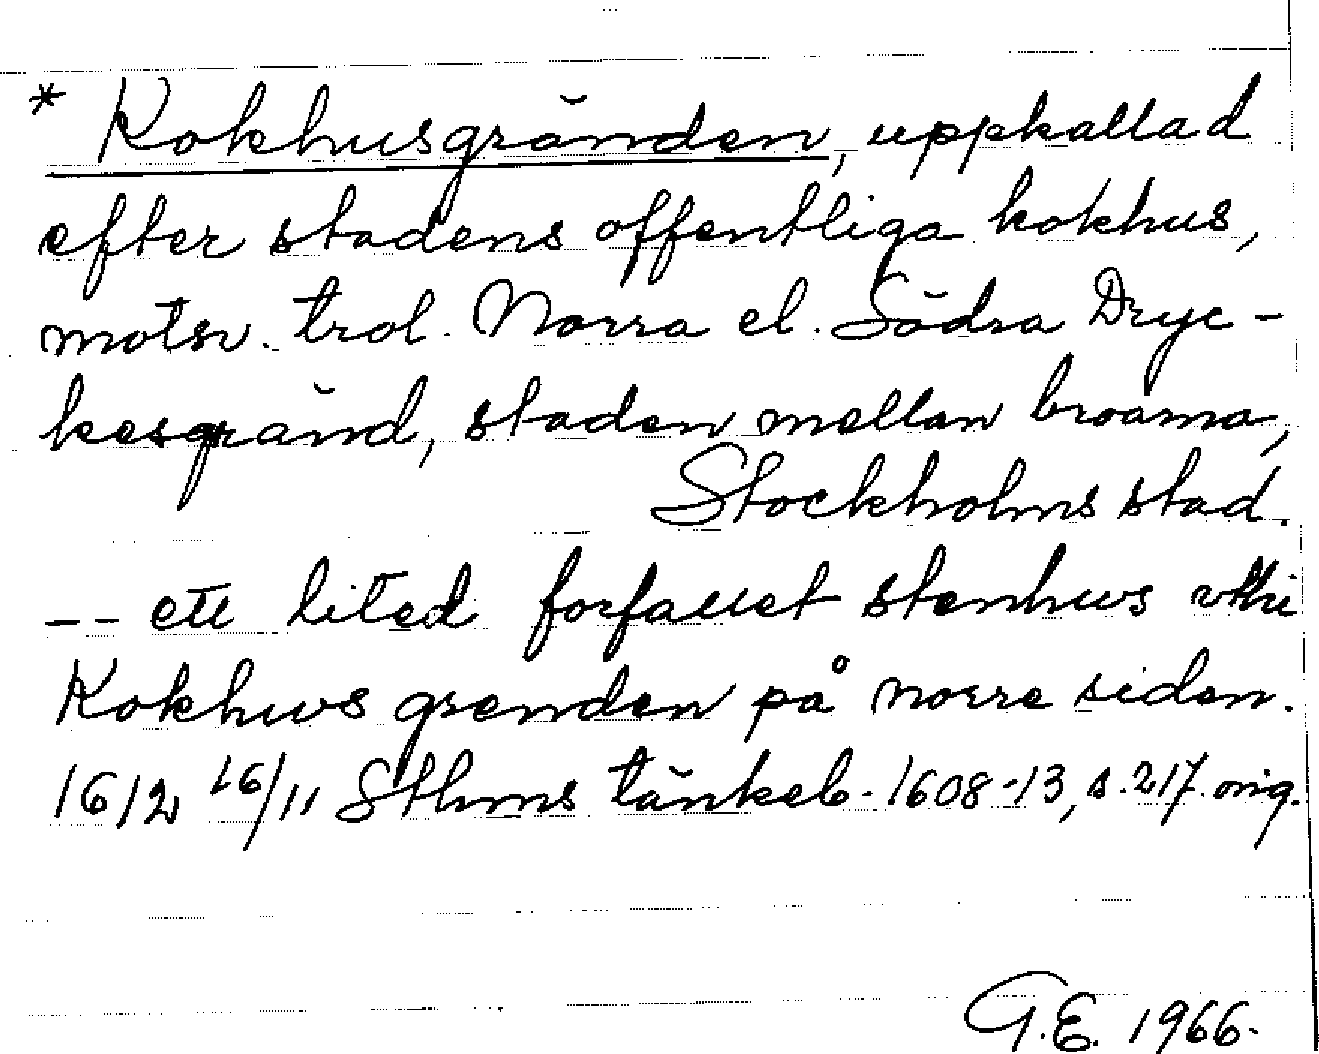 * Kokhusgränden, uppkallad
efter stadens offentliga kokhus,
motsv. trol. Norra el. Södra Dryc-
kesgränd, staden mellan broarna,
Stockholms stad.
-- ett lited forfallet stenhws vthi
Kokhws grenden på norre siden.
1612 16/11 Sthms tänkeb. 1608-13, s. 217 orig.
G.E. 1966.